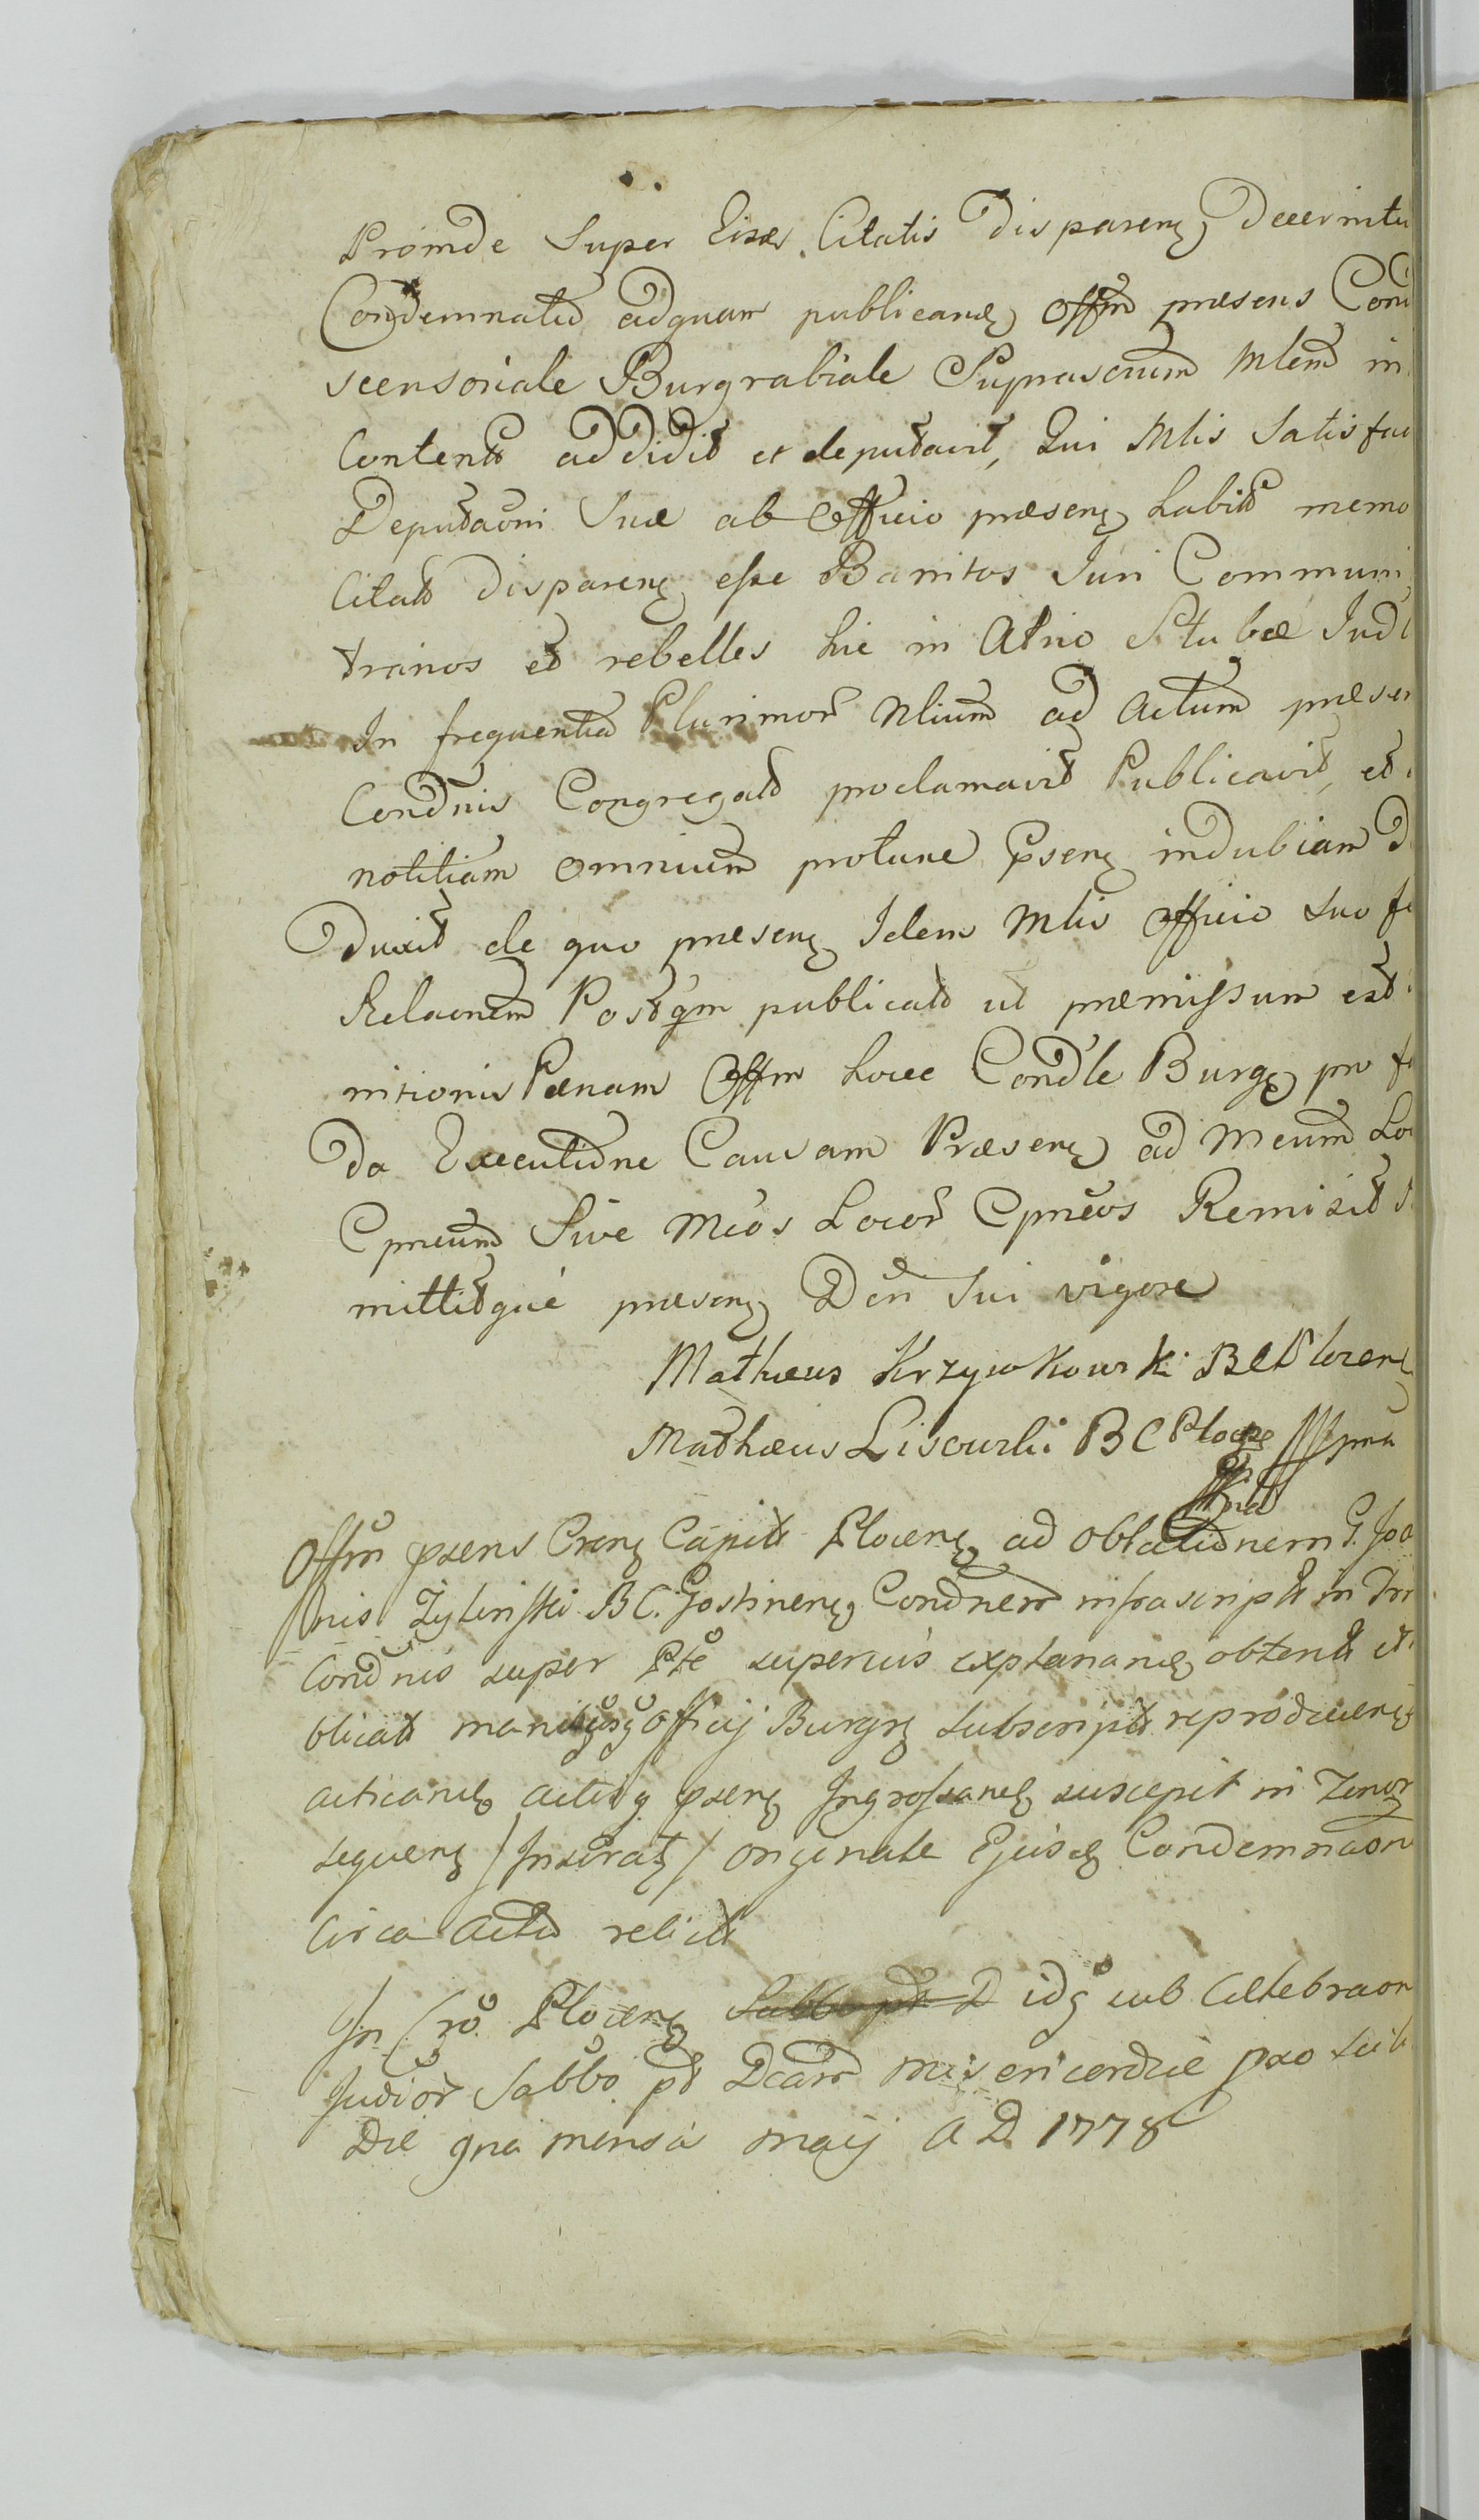 Proinde Super Eisdem Citatis disparen Decernitu
Condemnatio adquam publicand Offm præsens Con
scensoriale Burgrabiale Suprascrium Mlem in
Content addidit et deputavit, Qui Mlis Satisfa
Deputaoni Suæ ab Officio præsen habit memo
Citat disparen esse Banitos Juri Communi
trarios et rebelles hic in Atrio Stubæ Judi
In frequentia Plurimor Nlium ad Actum præsen
Condnis Congregat proclamavit Publicavit, et
notitiam omnium protunc psen indubiam d
duxit de quo præsen Idem Mlis Officio suo f
Relaonem Postqm publicat ut præmissum est
nitionis Pænam Offm hocce Condle Burg pro f
da Executione Causam Præsen ad Meum Lo
Cpneum Sive Meos Locor Cpneos Remisit
mittitque præsen Den sui vigore
Mathæus Krzywkowski B C Plocen
Mathæus Lisowski B C Plocen mpria
Offm psens Cren Capit Plocen ad oblationem G. Joa
nis Zylinski B C. Gostinen, Condnem infrascript in
Condnis super Pte superius explanand obtent et
blicat manibusq Officij Burg subscript reproducen
acticand actisq psen Ingrossand suscepit in Tenor
sequen / Inserat / originale Ejusd Condemnaon
circa Acta relict
In Cro Plocen idq sub Celebraon
Judior Sabbo pt Dcam misericordiæ pxo
Die gna mensis Maij A D. 1778